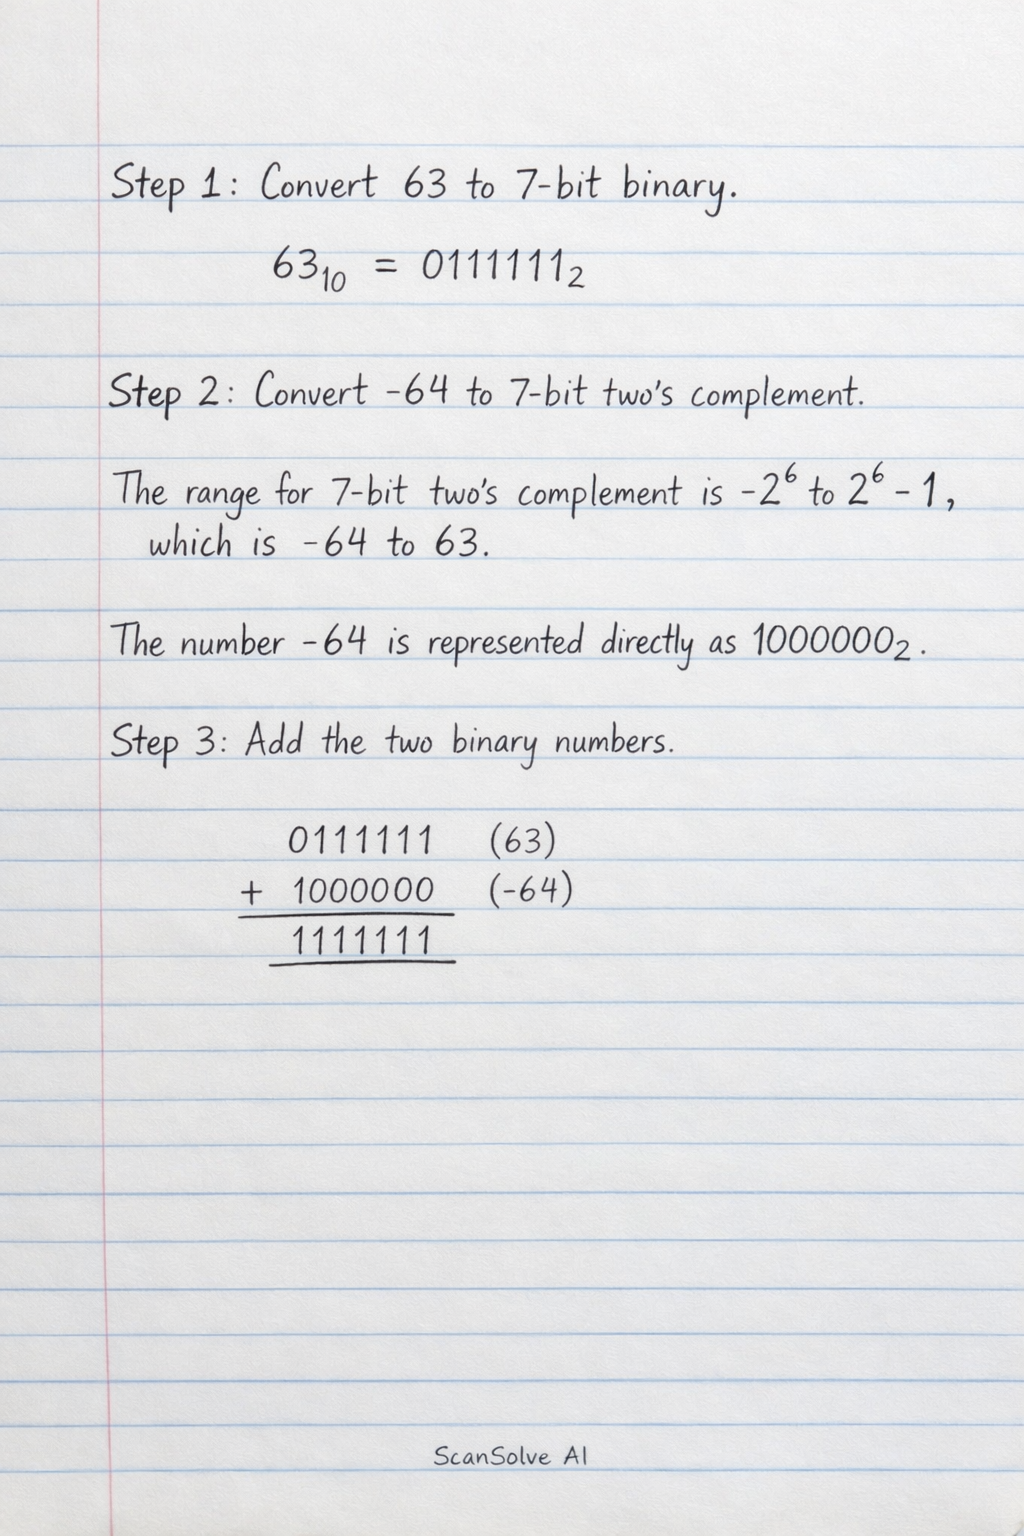 Step 1: Convert 63 to 7-bit binary.
63₁₀ = 0111111₂
Step 2: Convert -64 to 7-bit two's complement.
The range for 7-bit two's complement is -2⁶ to 2⁶ - 1,
which is -64 to 63.
The number -64 is represented directly as 1000000₂.
Step 3: Add the two binary numbers.
0111111 (63)
+ 1000000 (-64)
1111111
ScanSolve AI